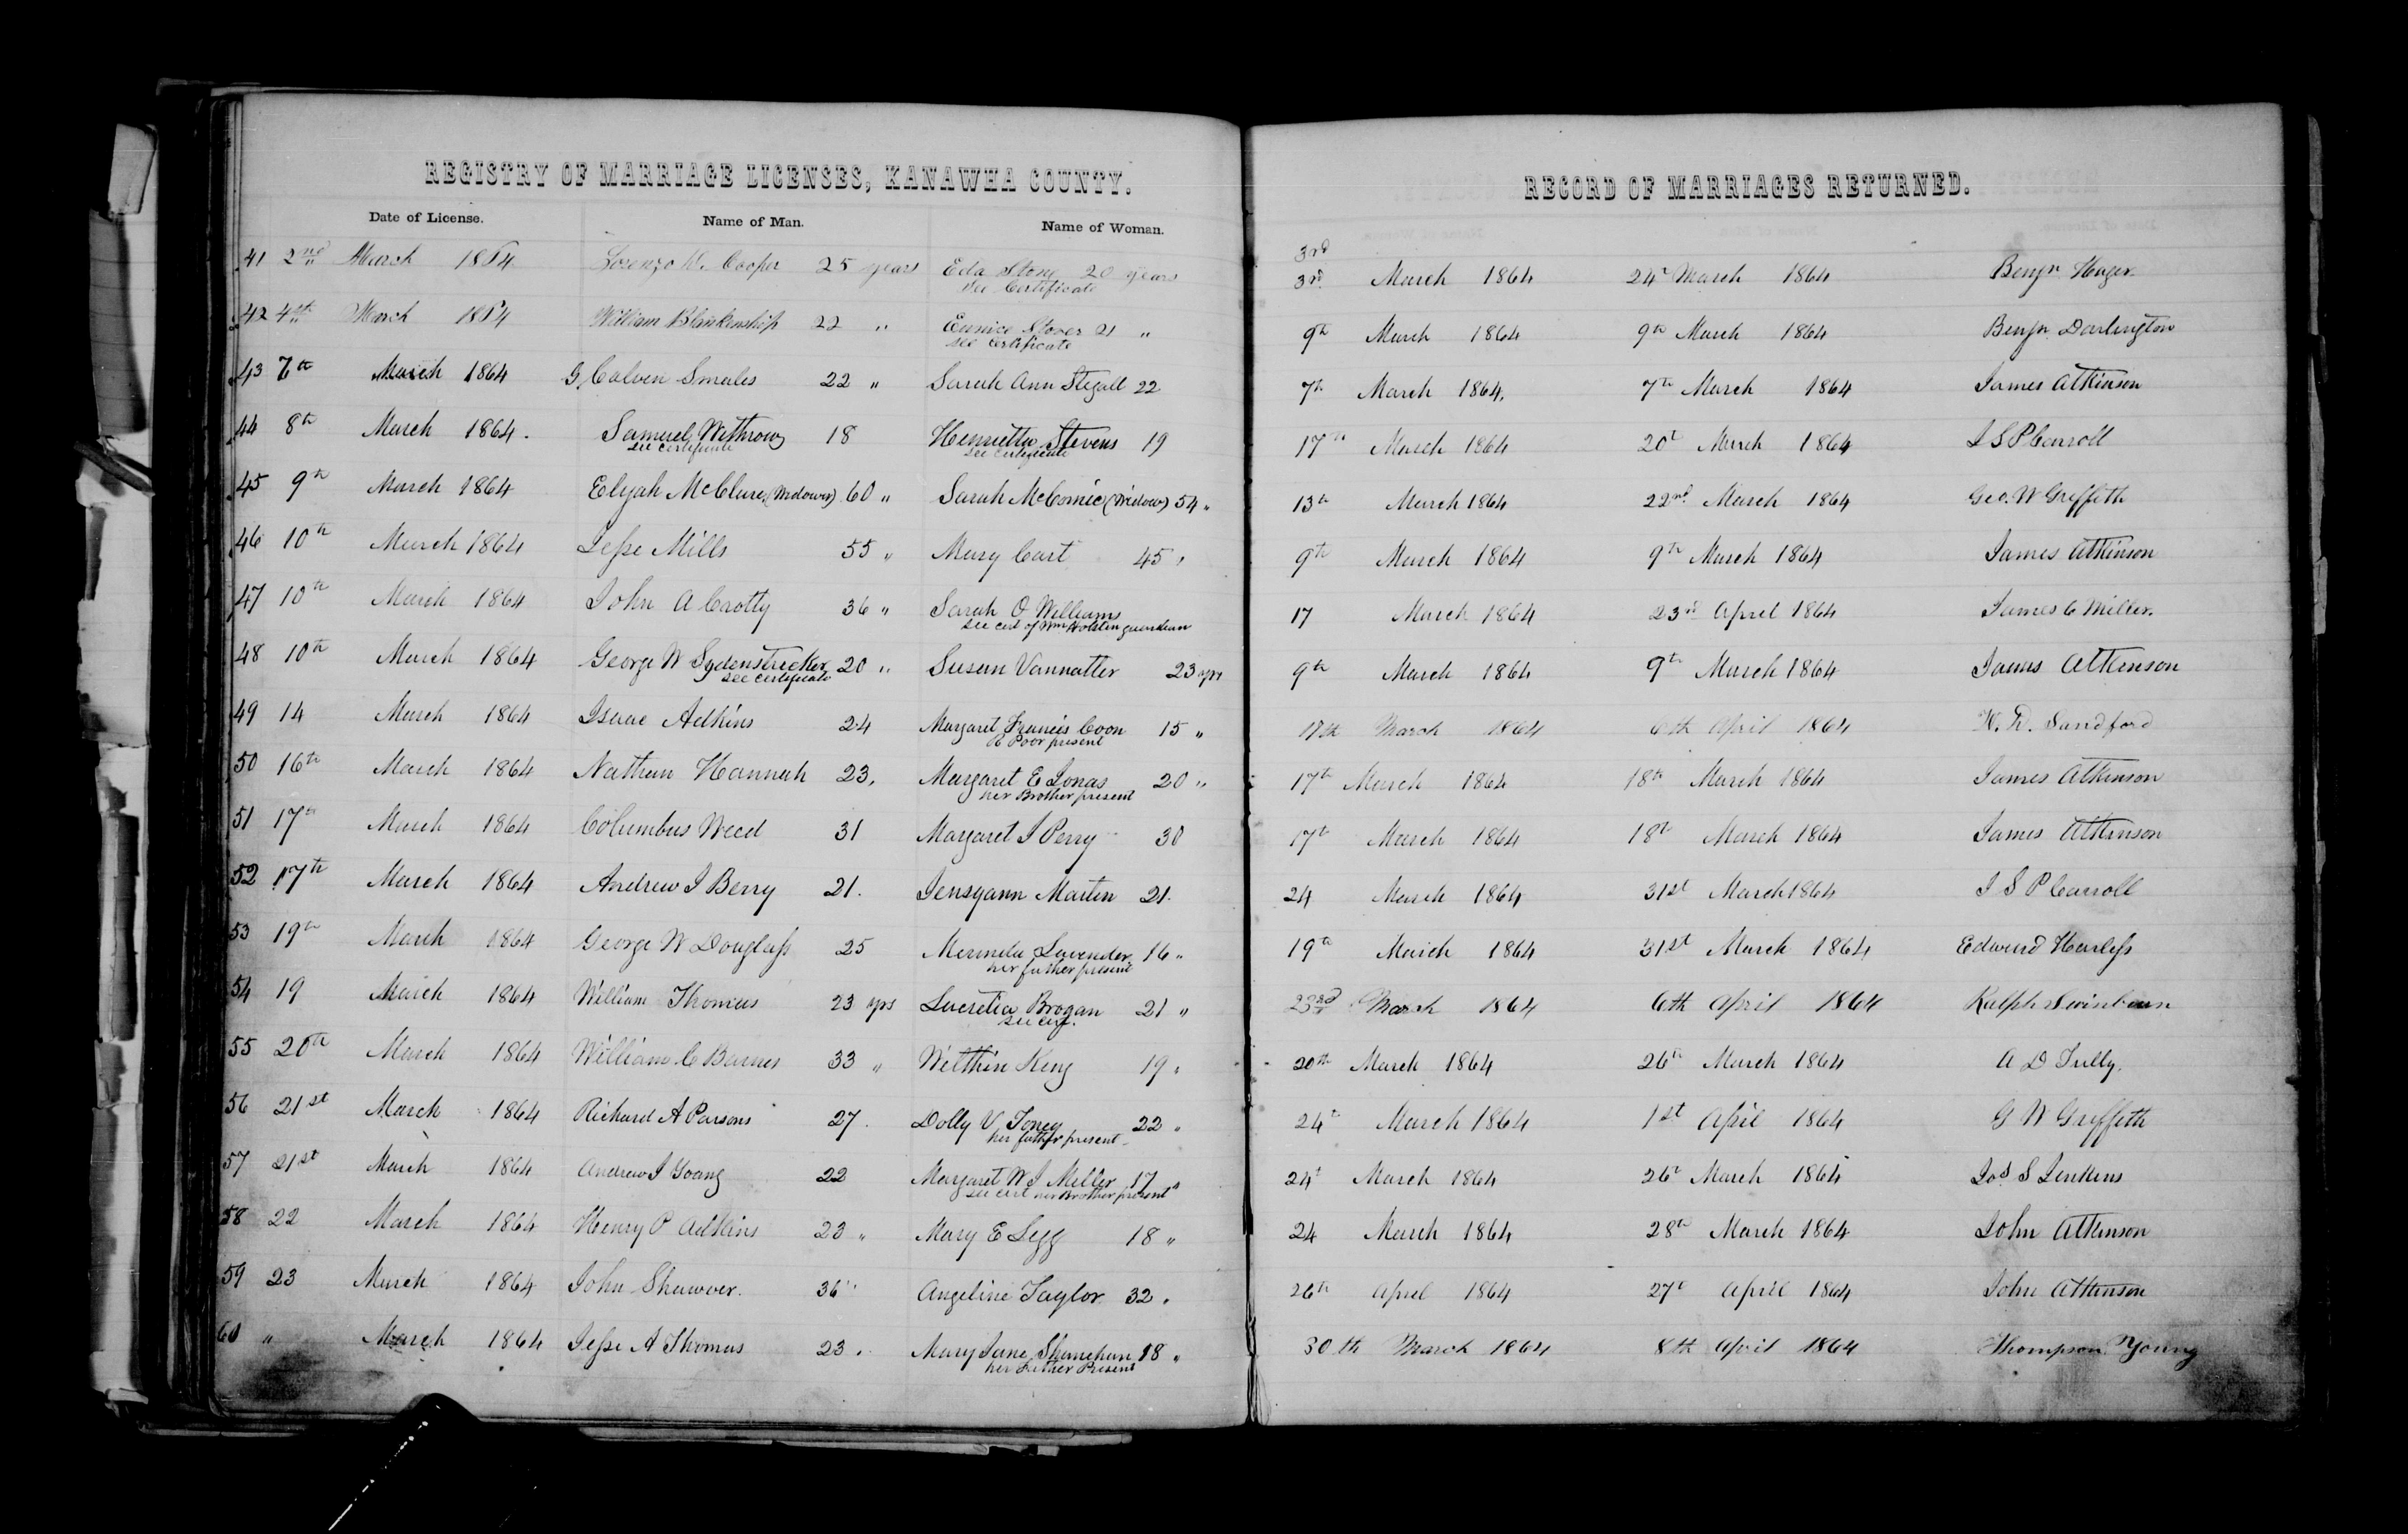 REGISTRY OF MARRIAGE LICENSES, KANAWHA COUNTY.
Date of License. Name of Man. Name of Woman.
41 2nd March 1864 Lorenzo D. Cooper 25 years Eda Stone 20 years
See Certificate
42 4th March 1864 William Blankenship 22 " Eunice Stover 21 "
see certificate
43 7th March 1864 G, Calven Smales 22 " Sarah Ann Stegall 22
44 8th March 1864. Samuel Withrow 18 Henrietta Stevens 19
see certificate see certificate
45 9th March 1864 Elyah McClure (Widower) 60 " Sarah McComic (Widow) 54 "
46 10th March 1864 Jesse Mills 55 " Mary Cart 45 "
47 10th March 1864 John A Crotty 36 " Sarah O Williams
see cert of Wm Holstin guardian
48 10th March 1864 George W Sydenstricker 20 " Susan Vannatter 23 yrs
see certificate
49 14 March 1864 Isaac Adkins 24 Margaret Francis Coon 15 "
R Poor present
50 16th March 1864 Nathan Hannah 23, Margaret E Jonas 20 "
her Brother present
51 17th March 1864 Columbus Weed 31 Margaret J Perry 30
52 17th March 1864 Andrew J Berry 21. Jensyann Martin 21.
53 19th March 1864 George W Douglass 25 Merinda Lavender 16 "
her father present
54 19 March 1864 William Thomas 23 yrs Lucretia Brogan 21 "
see cer.
55 20th March 1864 William C Barnes 33 " Wilthin King 19 "
56 21st March 1864 Richard A Parsons 27. Dolly V Toney 22 "
her father present
57 21st March 1864 Andrew J Young 22 Margaret W J Miller 17 "
see cert her Brother present
58 22 March 1864 Henry P Adkins 23 " Mary E Legg 18 "
59 23 March 1864 John Shawver. 36 " Angeline Taylor 32 "
60 " March 1864 Jesse A Thomas 23 . Mary Jane Shanehan 18 "
her Father Present
RECORD OF MARRIAGES RETURNED.
3rd
3rd March 1864 24t March 1864 Benjn Hager
9th March 1864 9th March 1864 Benjn Darlington
7th March 1864, 7th March 1864 James Atkinson
17th March 1864 20t March 1864 J S P Carroll
13th March 1864 22nd March 1864 Geo. W Griffeth
9th March 1864 9th March 1864 James Atkinson
17 March 1864 23rd April 1864 James C Miller.
9th March 1864 9th March 1864 James Atkinson
17th March 1864 6th April 1864 Sandford
17th March 1864 18th March 1864 James Atkinson
17th March 1864 18t March 1864 James Atkinson
24 March 1864 31st March 1864 J S P Carroll
19th March 1864 31st March 1864 Edward Harless
23rd March 1864 6th April 1864 Ralph Swinburn
20th March 1864 26th March 1864 A D Tully.
24th March 1864 1st April 1864 G W Griffeth
24t March 1864 26t March 1864 Jos S Jenkins
24 March 1864 28th March 1864 John Atkinson
26th April 1864 27t April 1864 John Atkinson
30th March 1864 8th April 1864 Thompson Young